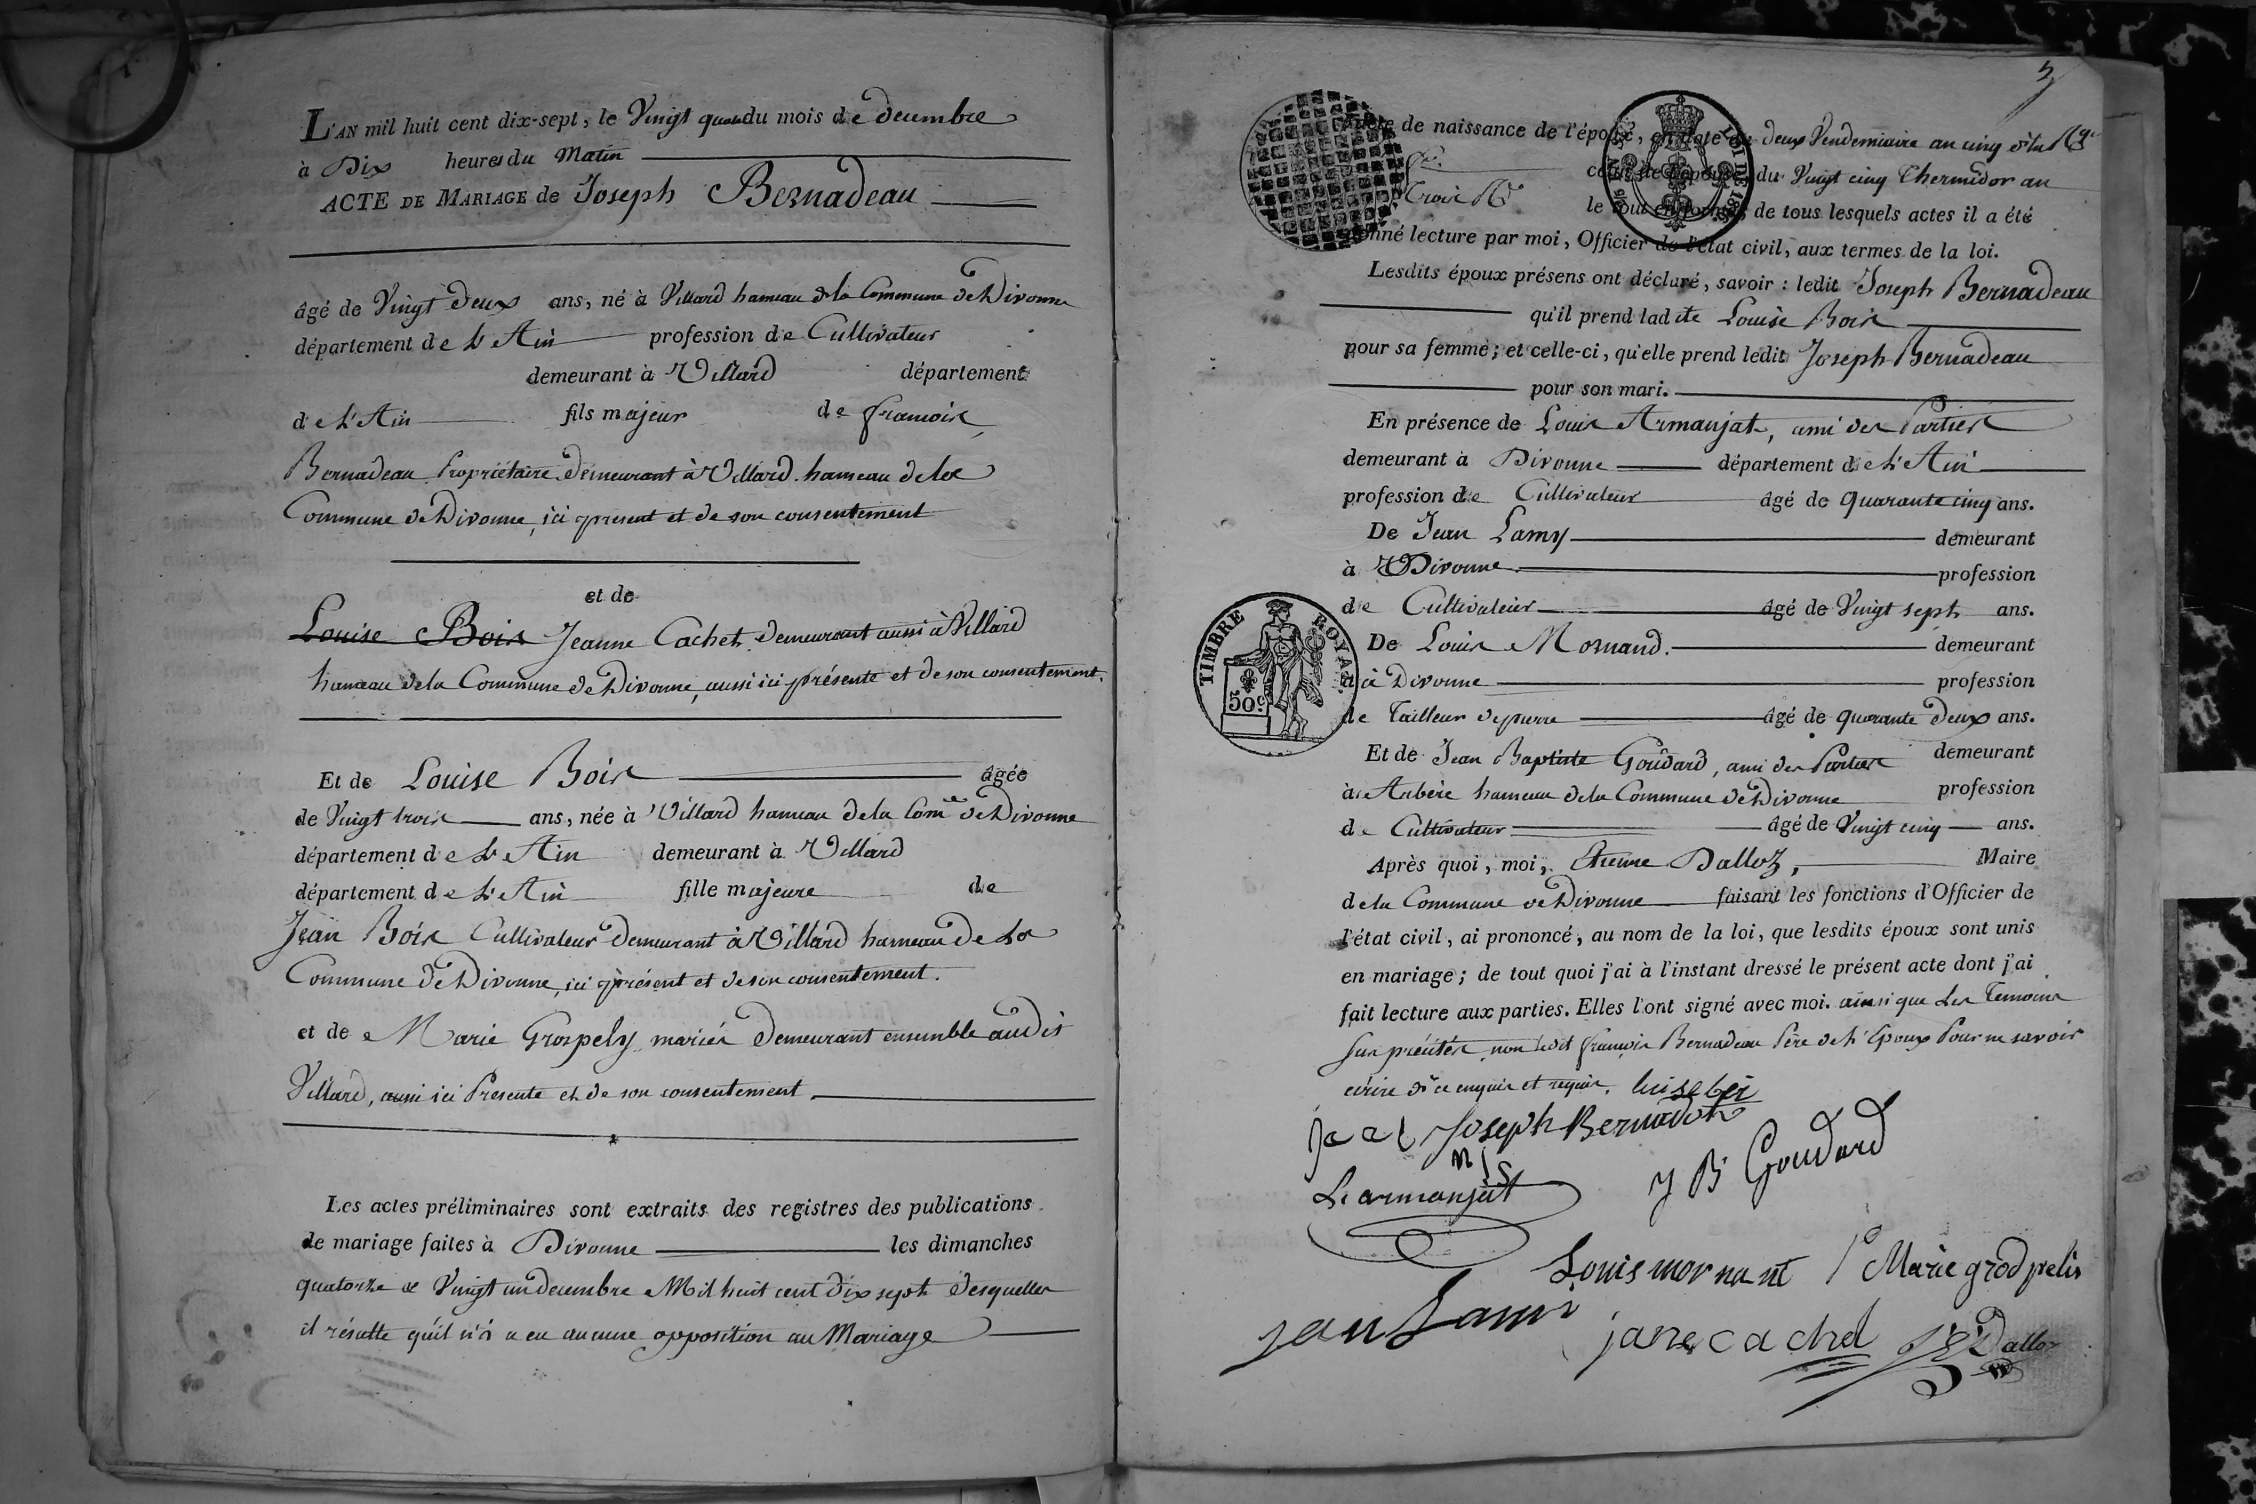 L'AN mil huit cent dix-sept, le Vingt quatre du mois de decembre
à Dix heures du Matin
ACTE DE MARIAGE de Joseph Bernadeau
âgé de Vingt deux ans, né à Villard hameau de la Commune de Divonne
département de L'Ain profession de Cultivateur
demeurant à Villard département
de L'Ain fils majeur de francois
Bernadeau Propriétaire demeurant à Villard hameau de la
Commune de Divonne, ici present et de son consentement
et de
Louise Bois Jeanne Cachet demeurant aussi à Villard
hameau de la Commune de Divonne, aussi ici présente et de son consentement.
Et de Louise Bois âgée
de Vingt trois ans, née à Villard hameau de la Comne de Divonne
département de L'Ain demeurant à Villard
département de L'Ain fille majeure de
Jean Bois Cultivateur demeurant à Villard hameau de La
Commune de Divonne, ici présent et de son consentement.
et de Marie Grospely mariés demeurant ensemble audit
Villard, aussi ici Presente et de son consentement
Les actes préliminaires sont extraits des registres des publications
de mariage faites à Divonne les dimanches
quatorze & Vingt un decembre Mil huit cent dix sept desquelles
il résulte qu'il n'y a eu aucune opposition au Mariage
3
Acte de naissance de l'époux, en date du deux Vendemiaire an cinq
celui de l'épouse du Vingt cinq Thermidor an
trois
le tout en forme, de tous lesquels actes il a été
donné lecture par moi, Officier de l'état civil, aux termes de la loi.
Lesdits époux présens ont déclaré, savoir : ledit Joseph Bernadeau
qu'il prend ladite Louise Bois
pour sa femme ; et celle-ci, qu'elle prend ledit Joseph Bernadeau
pour son mari.
En présence de Louis Armanjat, ami des Parties
demeurant à Divonne département de L'Ain
profession de Cultivateur âgé de quarante cinq ans.
De Jean Lamy demeurant
à Divonne profession
de Cultivateur âgé de Vingt sept ans.
De Louis Mornand. demeurant
à Divonne profession
de Tailleur de pierre âgé de quarante Deux ans.
Et de Jean Baptiste Goudard, ami des Parties demeurant
à Arbère hameau de la Commune de Divonne profession
de Cultivateur âgé de Vingt cinq ans.
Après quoi, moi, Etienne Dalloz, Maire
de la Commune de Divonne faisant les fonctions d'Officier de
l'état civil, ai prononcé, au nom de la loi, que lesdits époux sont unis
en mariage ; de tout quoi j'ai à l'instant dressé le présent acte dont j'ai
fait lecture aux parties. Elles l'ont signé avec moi. ainsi que Les Temoins
non ledit françois Bernadeau Père de l'Epoux Pour ne savoir
ecrire de ce enquis et requis.
Joseph Bernadon
L. armanjat J B Goudard
Louis mornant Marie grod pelis
jan Lami jane cachet Dalloz
TIMBRE ROYAL.
50c